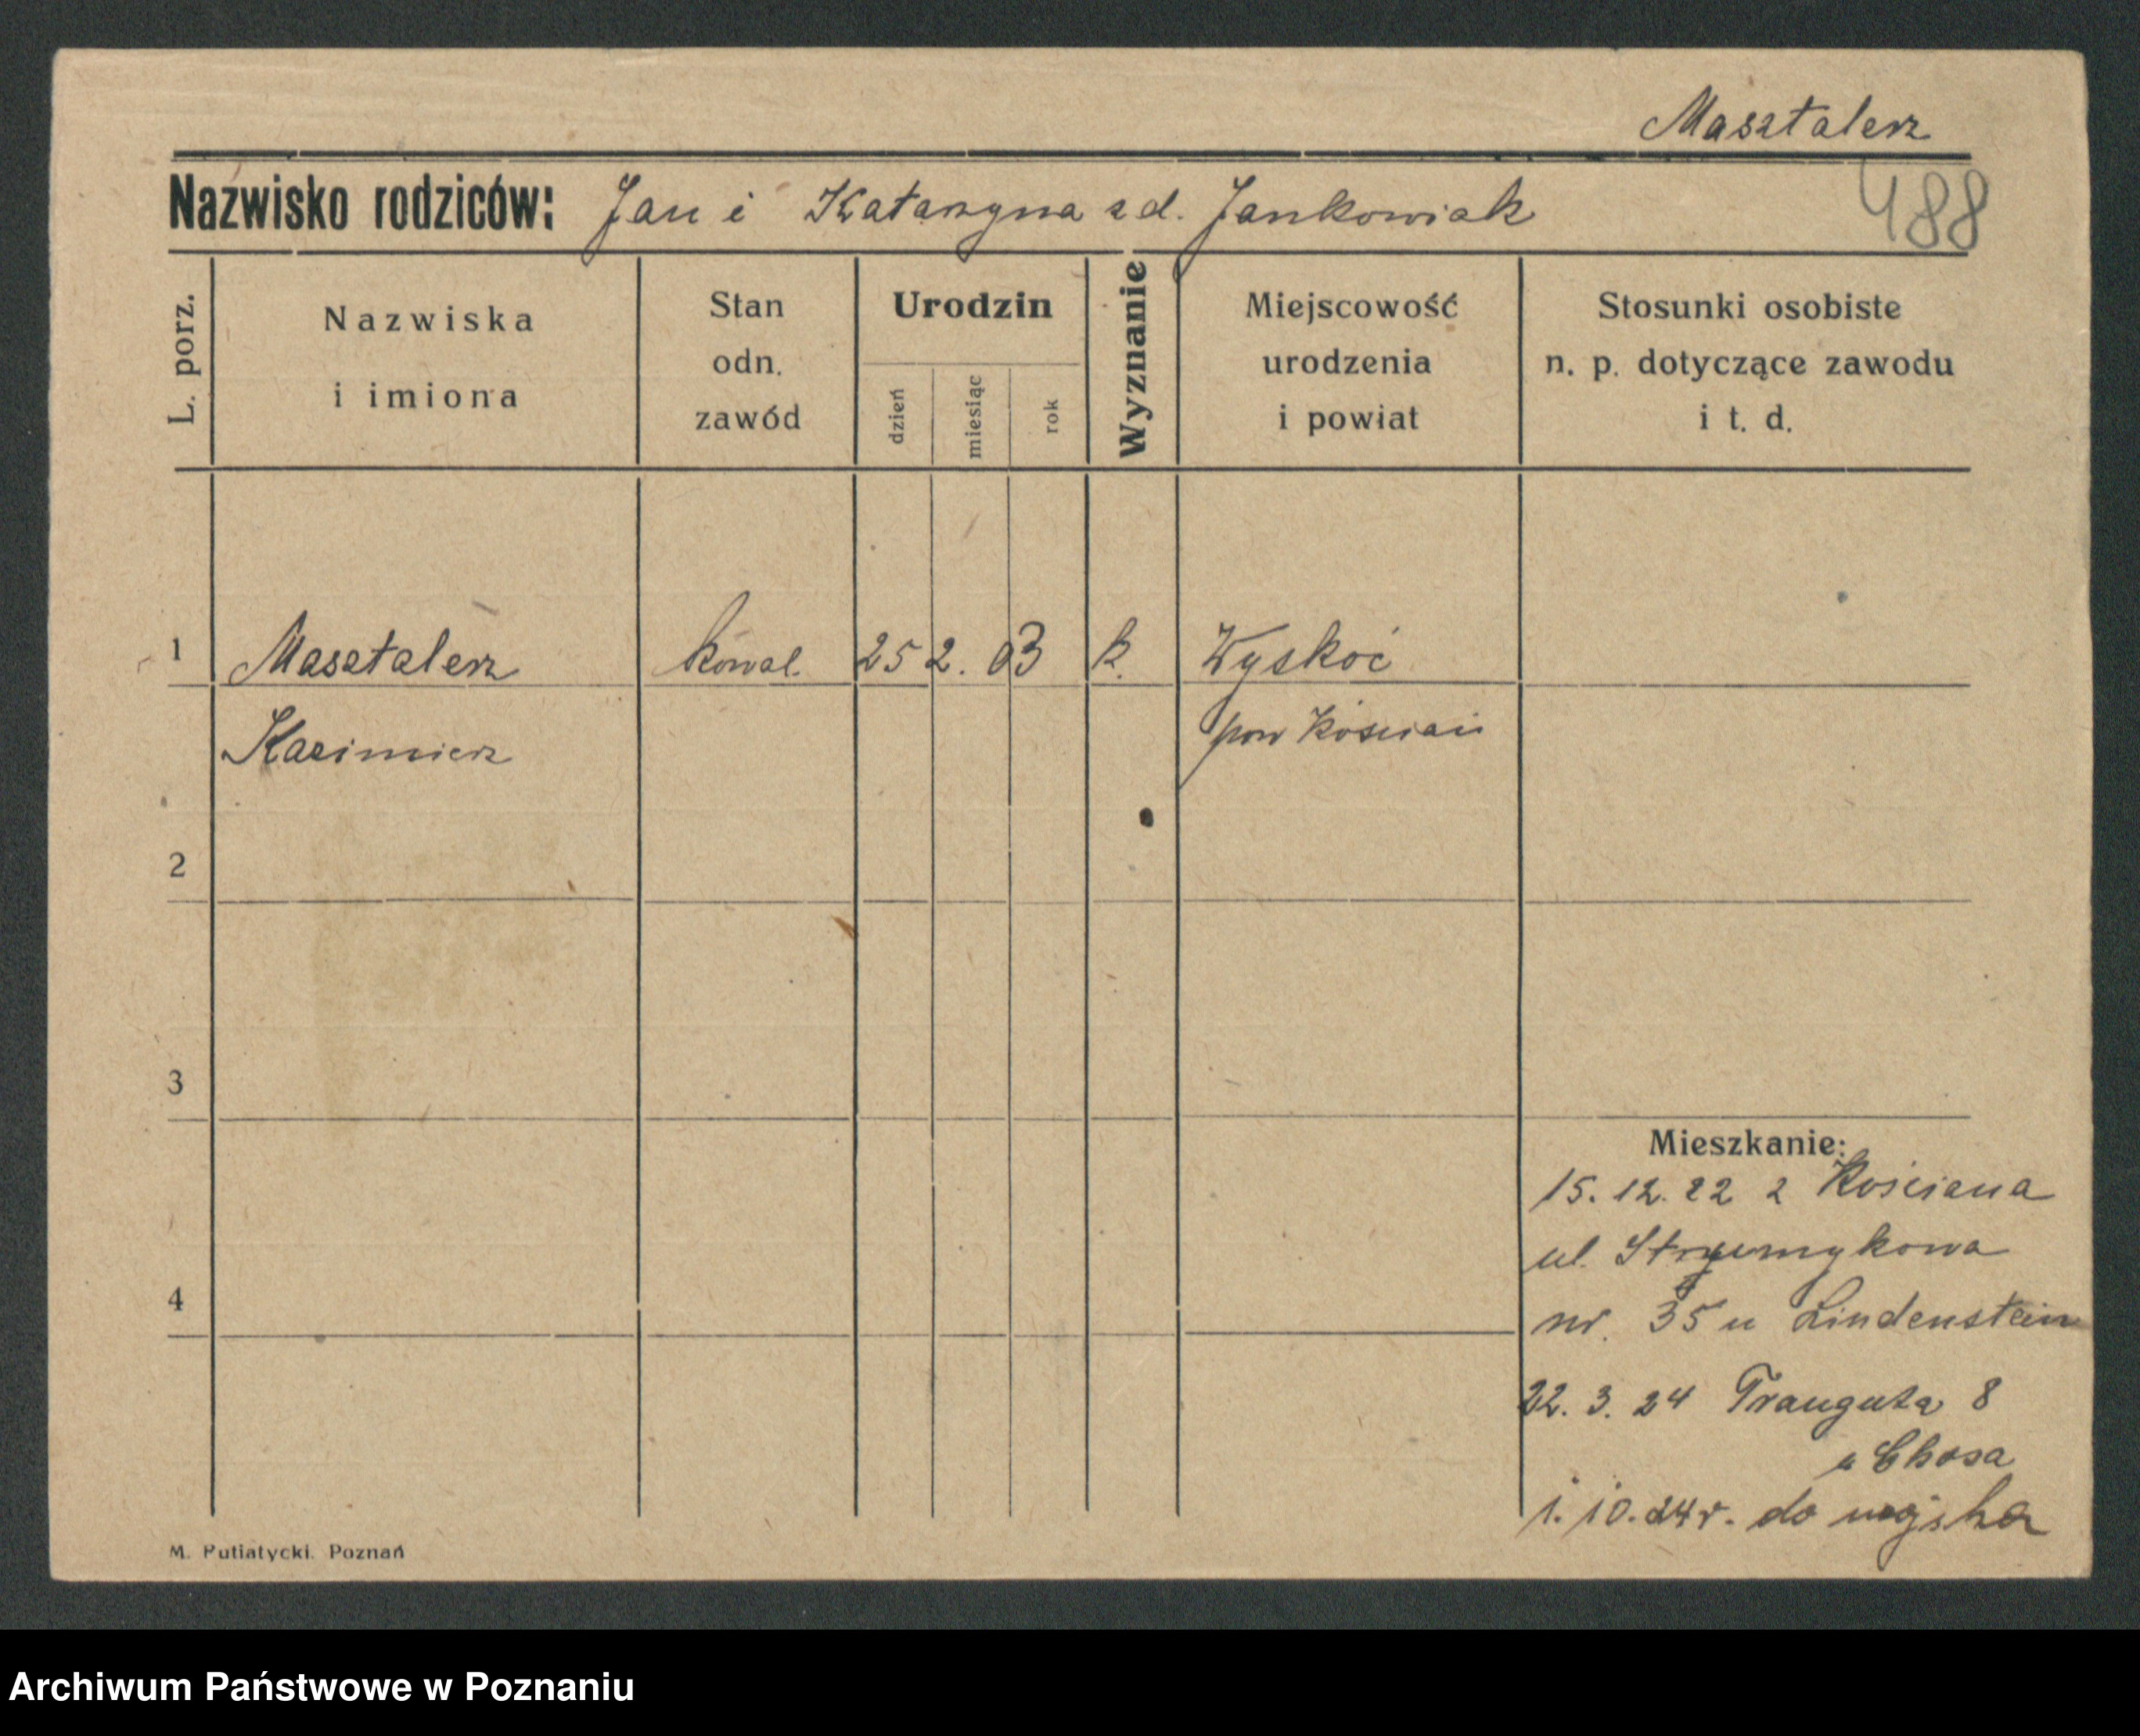 Masztalerz
Nazwisko rodziców: Jan i Katarzyna z d. Jankowiak
488
L. porz.
Nazwiska
i imiona
Stan
odn.
zawód
Urodzin
dzień
miesiąc
rok
Wyznanie
Miejscowość
urodzenia
i powiat
Stosunki osobiste
n. p. dotyczące zawodu
i t. d.
1 Masztalerz kowal. 25 2. 03 k. Wyskoć
Kazimierz pow Kościan
2
3
4
Mieszkanie:
15. 12. 22 z Kościana
ul. Strumykowa
nr. 35 u Lindenstein
22. 3. 24 Trauguta 8
u
1. 10. 24 r. do wojska
M. Putiatycki. Poznań
Archiwum Państwowe w Poznaniu